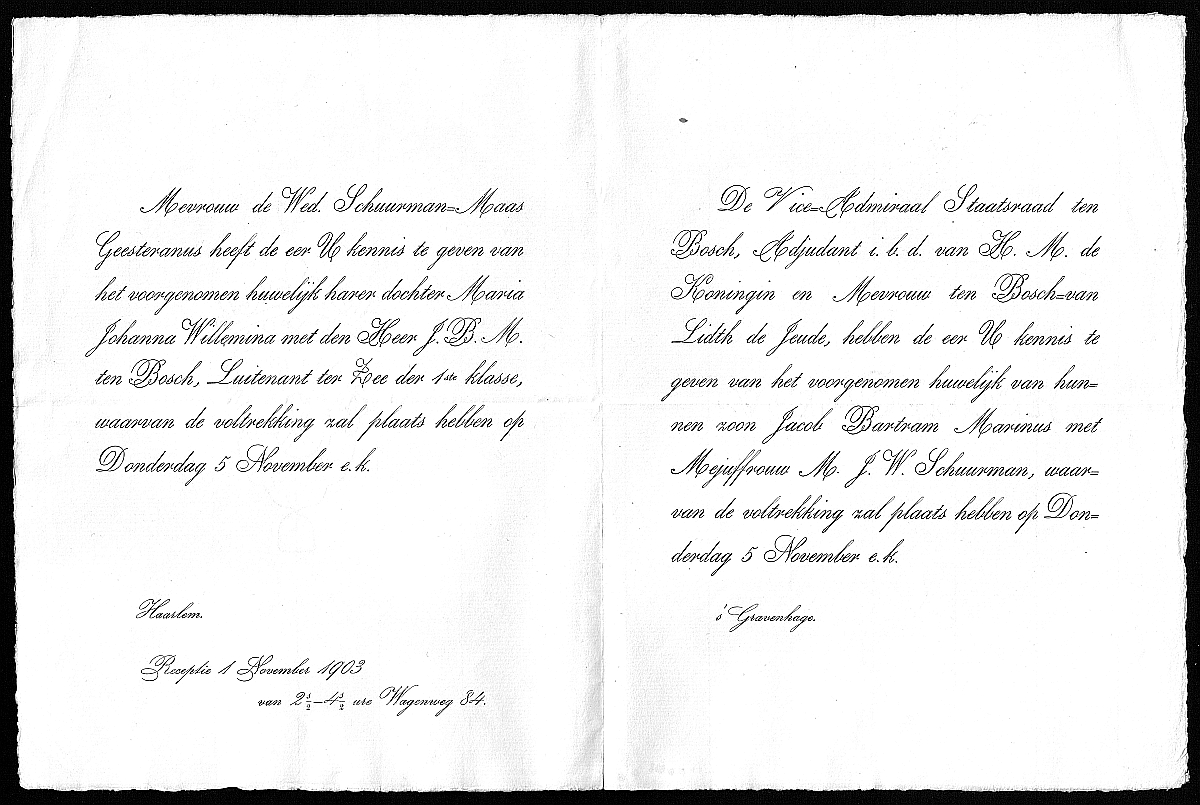 Mevrouw de Wed. Schuurman=Maas
Geesteranus heeft de eer U kennis te geven van
het voorgenomen huwelijk harer dochter Maria
Johanna Willemina met den Heer J. B. M.
ten Bosch, Luitenant ter Zee der 1ste klasse,
waarvan de voltrekking zal plaats hebben op
Donderdag 5 November e.k.
Haarlem.
Receptie 1 November 1903
van 2½–4½ ure Wagenweg 84.
De Vice=Admiraal Staatsraad ten
Bosch, Adjudant i. b. d. van H. M. de
Koningin en Mevrouw ten Bosch=van
Lidth de Jeude, hebben de eer U kennis te
geven van het voorgenomen huwelijk van hun=
nen zoon Jacob Bartram Marinus met
Mejuffrouw M. J. W. Schuurman, waar=
van de voltrekking zal plaats hebben op Don=
derdag 5 November e.k.
's Gravenhage.